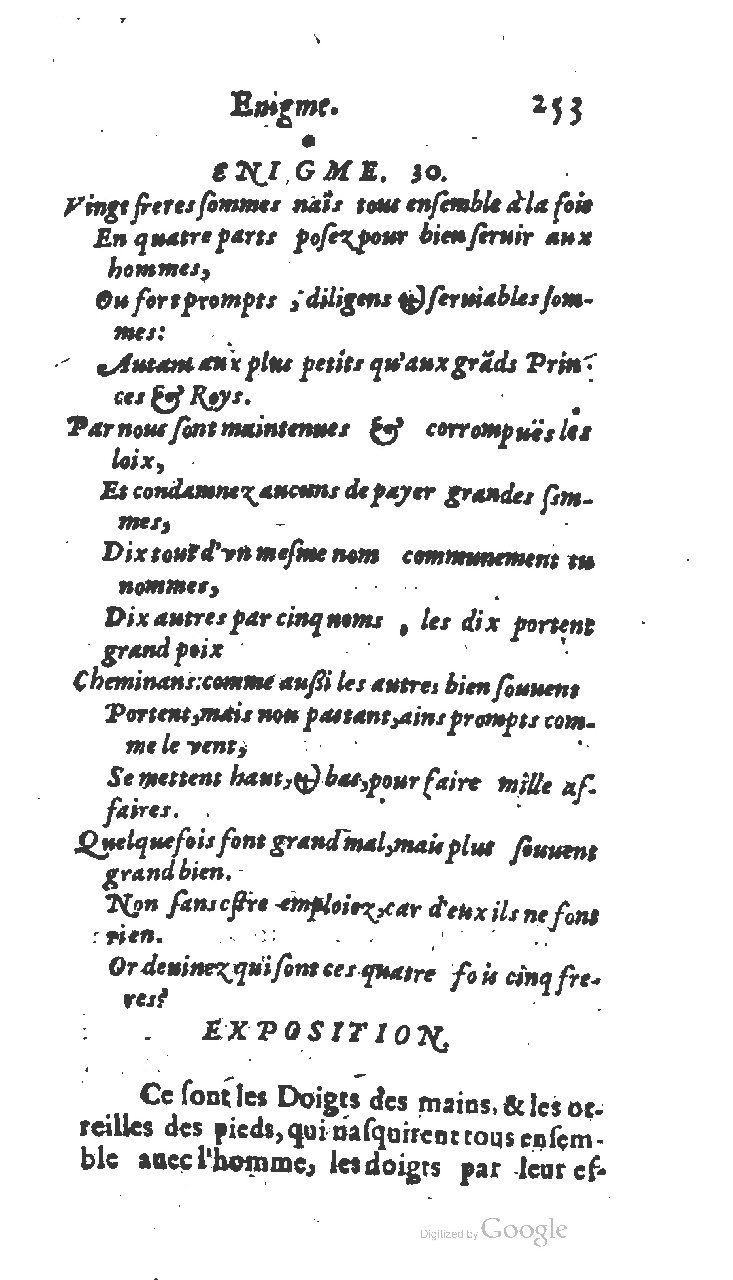 Enigme. 253
ENIGME. 30.
Vingt freres sommes naîs tout ensemble à la fois
En quatre parts posez pour bien seruir aux
hommes,
Ou fort prompts , diligens & seruiables som-
mes:
Autant aux plus petits qu'aux grãds Prin-
ces & Roys.
Par nous sont maintenues & corrompuës les
loix,
Et condamnez aucuns de payer grandes som-
mes,
Dix tout d'vn mesme nom communement tu
nommes,
Dix autres par cinq noms , les dix portent
grand poix
Cheminans:comme aussi les autres bien souuent
Portent,mais non pas tant,ains prompts com-
me le vent,
Se mettent haut,& bas,pour faire mille af-
faires.
Quelquefois font grand mal,mais plus souuent
grand bien.
Non sans estre emploiez,car d'eux ils ne font
rien.
Or deuinez qui sont ces quatre fois cinq fre-
res?
EXPOSITION.
Ce sont les Doigts des mains, & les or-
reilles des pieds, qui nasquirent tous ensem-
ble auec l'homme, les doigts par leur ef-
Digitized by Google